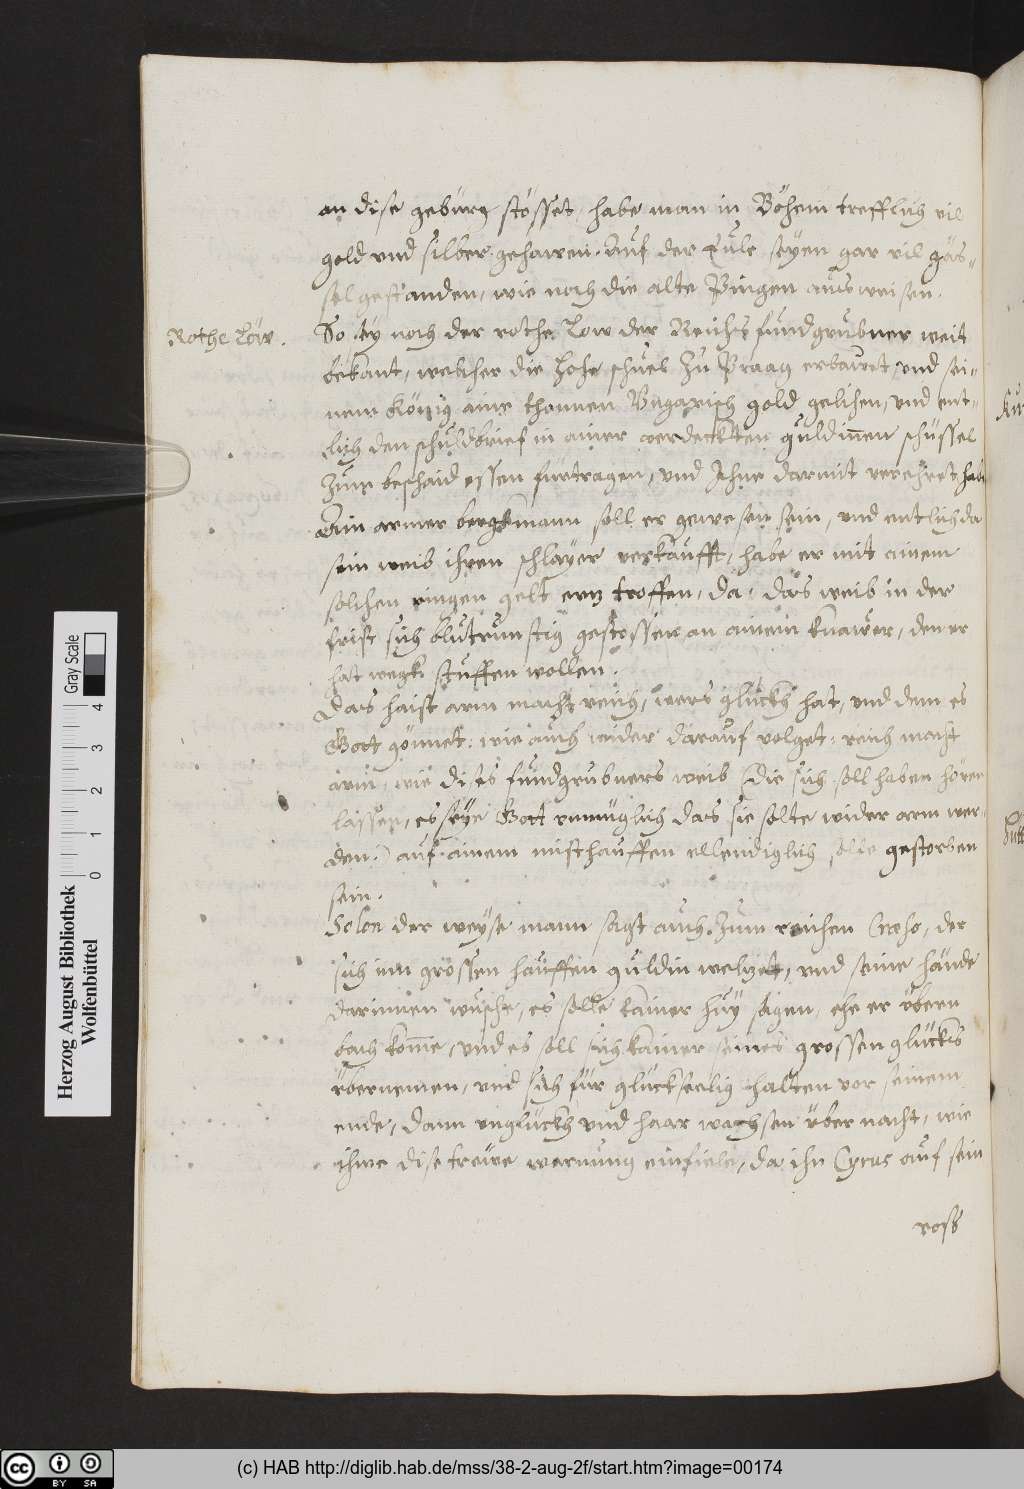 an dise gebürg stösset, habe man in Böhem trefflich vil
gold vnd silber gehawen. Auf der Eule seyen gar vil göp-
pel gestanden, wie noch die alte Pingen ausweisen.
Rothe Löw.
So sey noch der rothe Low der Reichs fundgrubner weit
bekant, welcher die hohe schuel zu Praag erbauwt, vnd sei-
nem König aine thonnen Vngarisch gold gelihen, vnd ent-
lich den schuldbrief in ainer verdeckten guldinnen schüssel
zum beschaid essen fürtragen, vnd Ihne darmit verehret hab
Ain armer bergkmann soll er gewesen sein, vnd entlich da
sein weib ihren schlayer verkaufft, habe er mit ainem
solchen ringen gelt ertz troffen, da das weib in der
frist sich blutrünstig gestossen an ainem knawer, den er
hat wegk stuffen wollen.
Das haist arm macht reich, wers glückh hat, vnd dem es
Gott gönnet: wie auch wider darauf volget: reich macht
arm, wie dises fundgrubners weib (die sich soll haben hören
lassen, es seye Gott vnmüglich das sie solte wider arm wer-
den.) auf ainem misthauffen ellendiglich solle gestorben
sein.
Solon der weyse mann sagt auch zum reichen Cræso, der
sich inn grossen hauffen guldin weltzet, vnd seine hände
darinnen wusche, es solle kainer huy sagen, ehe er vbern
bach komme, vnd es soll sich kainer seines grossen glücks
vbernemen, vnd sich für glückseelig halten vor seinem
ende, dann vnglückh vnd haar wachsen vber nacht, wie
ihme dise trewe warnung einfiele, da ihn Cyrus auf sein
ross
Herzog August Bibliothek
Wolfenbüttel
0 1 2 3 4
Gray Scale
CC BY SA
(c) HAB http://diglib.hab.de/mss/38-2-aug-2f/start.htm?image=00174